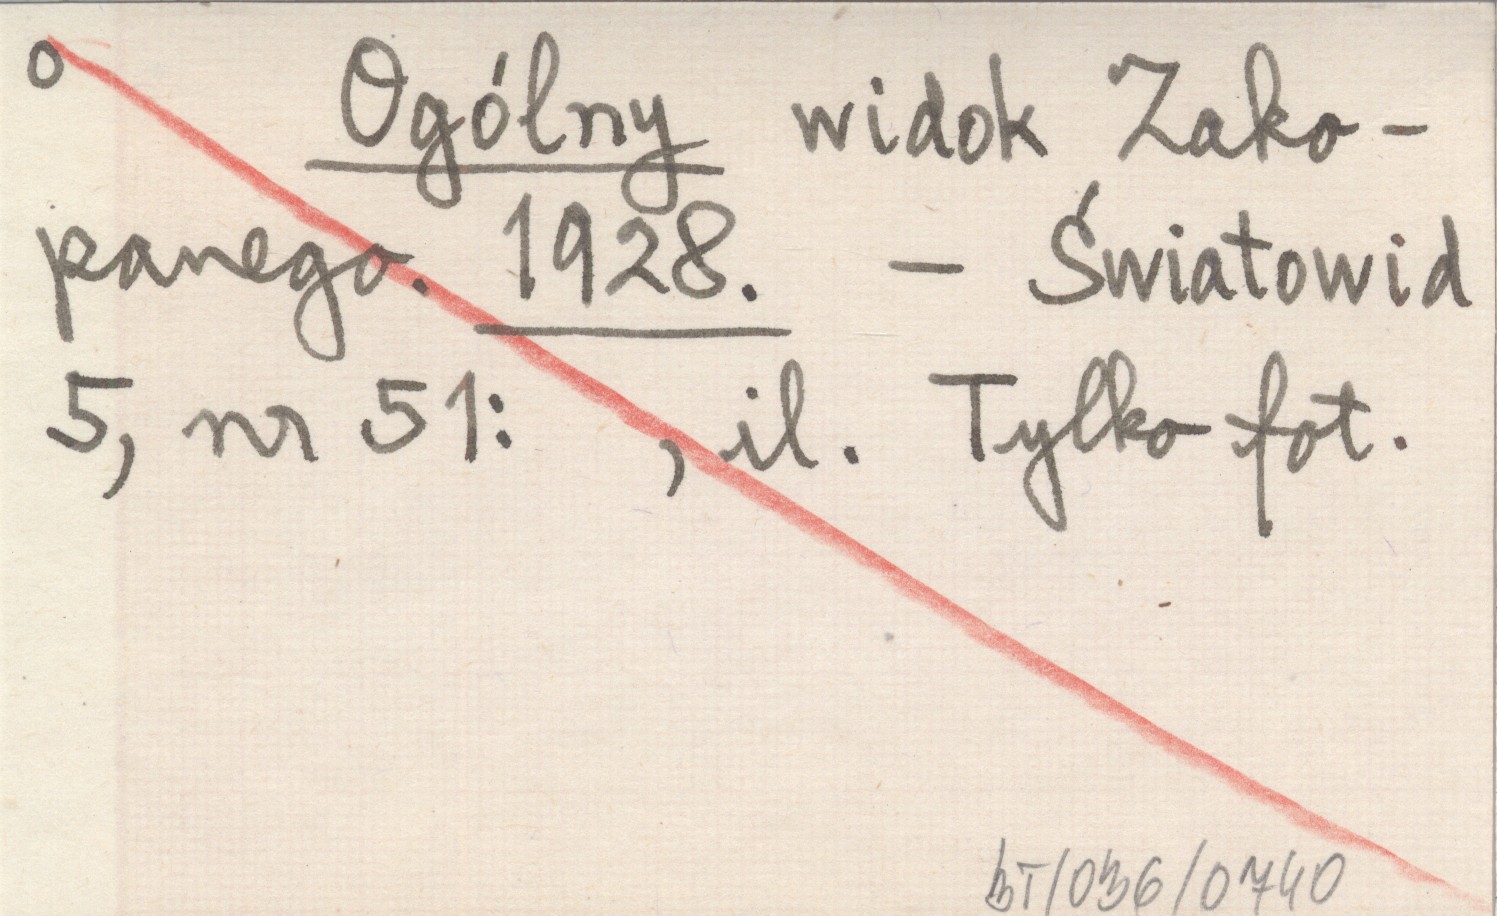 o Ogólny widok Zako-
panego. 1928. – Światowid
5, nr 51: , il. Tylko fot.
BT/036/0740